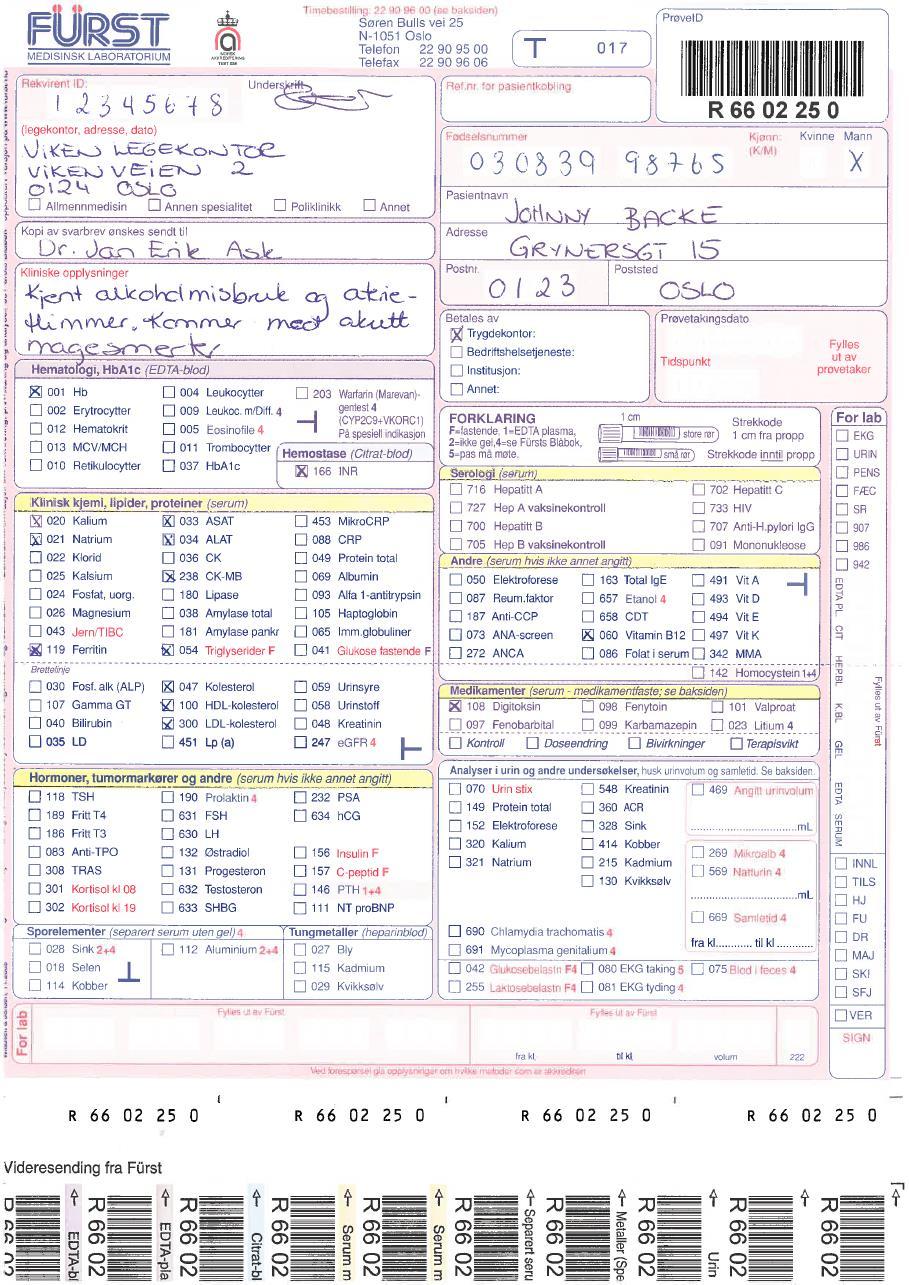 FÜRST
MEDISINSK LABORATORIUM
NORSK AKKREDITERING
Timebestilling: 22 90 96 00 (se baksiden)
Søren Bulls vei 25
N-1051 Oslo
Telefon 22 90 95 00
Telefax 22 90 96 06
T 017
PrøveID
R 66 02 25 0
Rekvirent ID:
1 2 3 4 5 6 7 8
Underskrift
(legekontor, adresse, dato)
VIKEN LEGEKONTOR
VIKENVEIEN 2
0124 OSLO
Allmennmedisin Annen spesialitet Poliklinikk Annet
Kopi av svarbrev ønskes sendt til
Dr. Jan Erik Ask
Kliniske opplysninger
Kjent alkoholmisbruk og atrie-
flimmer. Kommer med akutt
magesmerter
Ref.nr. for pasientkobling
Fødselsnummer
030839 98765
Kjønn: (K/M)
Kvinne Mann
X
Pasientnavn
JOHNNY BACKE
Adresse
GRYNERSGT 15
Postnr.
0123
Poststed
OSLO
Betales av
X Trygdekontor:
Bedriftshelsetjeneste:
Institusjon:
Annet:
Prøvetakingsdato
Tidspunkt
Fylles ut av prøvetaker
Hematologi, HbA1c (EDTA-blod)
X 001 Hb
002 Erytrocytter
012 Hematokrit
013 MCV/MCH
010 Retikulocytter
004 Leukocytter
009 Leukoc. m/Diff. 4
005 Eosinofile 4
011 Trombocytter
037 HbA1c
203 Warfarin (Marevan)-
gentest 4
(CYP2C9+VKORC1)
På spesiell indikasjon
Hemostase (Citrat-blod)
X 166 INR
FORKLARING
F=fastende, 1=EDTA plasma,
2=ikke gel, 4=se Fürsts Blåbok,
5=pas må møte.
1 cm
store rør
små rør
Strekkode
1 cm fra propp
Strekkode inntil propp
Klinisk kjemi, lipider, proteiner (serum)
X 020 Kalium
X 021 Natrium
022 Klorid
025 Kalsium
024 Fosfat, uorg.
026 Magnesium
043 Jern/TIBC
X 119 Ferritin
X 033 ASAT
X 034 ALAT
036 CK
X 238 CK-MB
180 Lipase
038 Amylase total
181 Amylase pankr
X 054 Triglyserider F
453 MikroCRP
088 CRP
049 Protein total
069 Albumin
093 Alfa 1-antitrypsin
105 Haptoglobin
065 Imm.globuliner
041 Glukose fastende F
Brettelinje
030 Fosf. alk (ALP)
107 Gamma GT
040 Bilirubin
035 LD
X 047 Kolesterol
X 100 HDL-kolesterol
X 300 LDL-kolesterol
451 Lp (a)
059 Urinsyre
058 Urinstoff
048 Kreatinin
247 eGFR 4
Serologi (serum)
716 Hepatitt A
727 Hep A vaksinekontroll
700 Hepatitt B
705 Hep B vaksinekontroll
702 Hepatitt C
733 HIV
707 Anti-H.pylori IgG
091 Mononukleose
Andre (serum hvis ikke annet angitt)
050 Elektroforese
087 Reum.faktor
187 Anti-CCP
073 ANA-screen
272 ANCA
163 Total IgE
657 Etanol 4
658 CDT
X 060 Vitamin B12
086 Folat i serum
491 Vit A
493 Vit D
494 Vit E
497 Vit K
342 MMA
142 Homocystein 1+4
Medikamenter (serum - medikamentfaste; se baksiden)
X 108 Digitoksin
097 Fenobarbital
098 Fenytoin
099 Karbamazepin
101 Valproat
023 Litium 4
Kontroll Doseendring Bivirkninger Terapisvikt
Hormoner, tumormarkører og andre (serum hvis ikke annet angitt)
118 TSH
189 Fritt T4
186 Fritt T3
083 Anti-TPO
308 TRAS
301 Kortisol kl 08
302 Kortisol kl 19
190 Prolaktin 4
631 FSH
630 LH
132 Østradiol
131 Progesteron
632 Testosteron
633 SHBG
232 PSA
634 hCG
156 Insulin F
157 C-peptid F
146 PTH 1+4
111 NT proBNP
Sporelementer (separert serum uten gel) 4
028 Sink 2+4
018 Selen
114 Kobber
112 Aluminium 2+4
Tungmetaller (heparinblod)
027 Bly
115 Kadmium
029 Kvikksølv
Analyser i urin og andre undersøkelser, husk urinvolum og samletid. Se baksiden.
070 Urin stix
149 Protein total
152 Elektroforese
320 Kalium
321 Natrium
548 Kreatinin
360 ACR
328 Sink
414 Kobber
215 Kadmium
130 Kvikksølv
469 Angitt urinvolum
mL
269 Mikroalb 4
569 Natturin 4
mL
669 Samletid 4
fra kl........... til kl
690 Chlamydia trachomatis 4
691 Mycoplasma genitalium 4
042 Glukosebelastn F4
255 Laktosebelastn F4
080 EKG taking 5
081 EKG tyding 4
075 Blod i feces 4
For lab
EKG
URIN
PENS
FÆC
SR
907
986
942
EDTA PL CIT HEP.BL K.BL GEL EDTA SERUM
Fylles ut av Fürst
INNL
TILS
HJ
FU
DR
MAJ
SKI
SFJ
VER
SIGN
For lab
Fylles ut av Fürst
Fylles ut av Fürst
fra kl. til kl. volum 222
Ved forespørsel gis opplysninger om hvilke metoder som er akkreditert
R 66 02 25 0 R 66 02 25 0 R 66 02 25 0 R 66 02 25 0
Videresending fra Fürst
R 66 02
EDTA-bl
R 66 02
EDTA-pla
R 66 02
Citrat-bl
R 66 02
Serum m
R 66 02
Serum m
R 66 02
Separert seru
R 66 02
Metaller (Spe
R 66 02
Urin
R 66 02
R 66 02